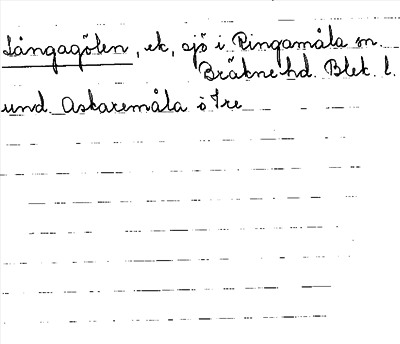 Långagölen, ek, sjö i Ringamåla sn.
Bräkne hd. Blek. l.
und. Askaremåla ö Ire